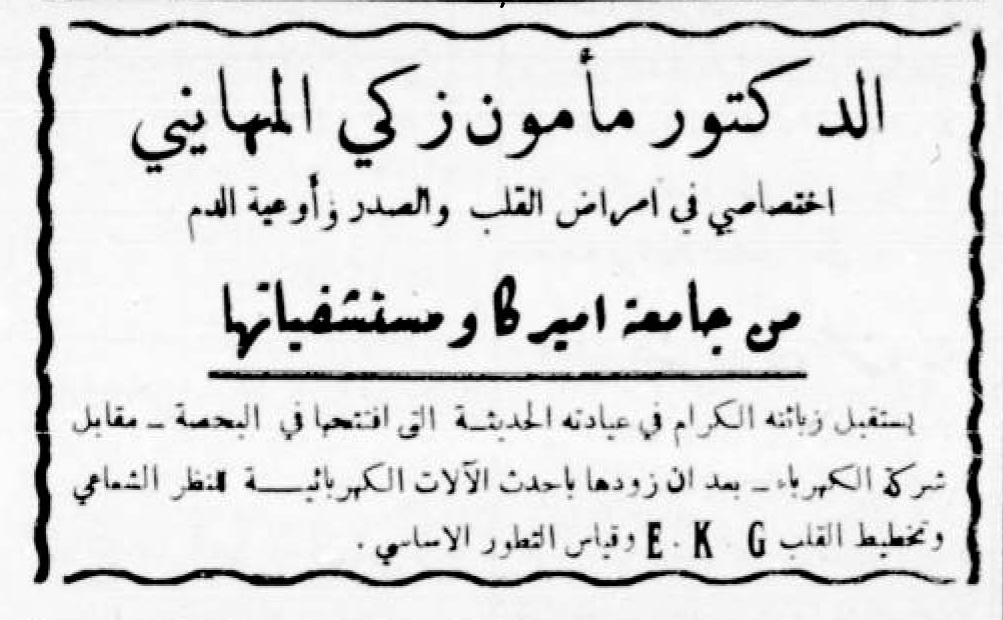 الدكتور مأمون زكي المهايني
اختصاصي في امراض القلب والصدر وأوعية الدم
من جامعة اميركا ومستشفياتها
يستقبل زبائنه الكرام في عيادته الحديثة التي افتتحها في البحصة - مقابل
شركة الكهرباء - بعد ان زودها باحدث الآلات الكهربائية للنظر الشعاعي
وتخطيط القلب E . K . G وقياس التطور الاساسي .